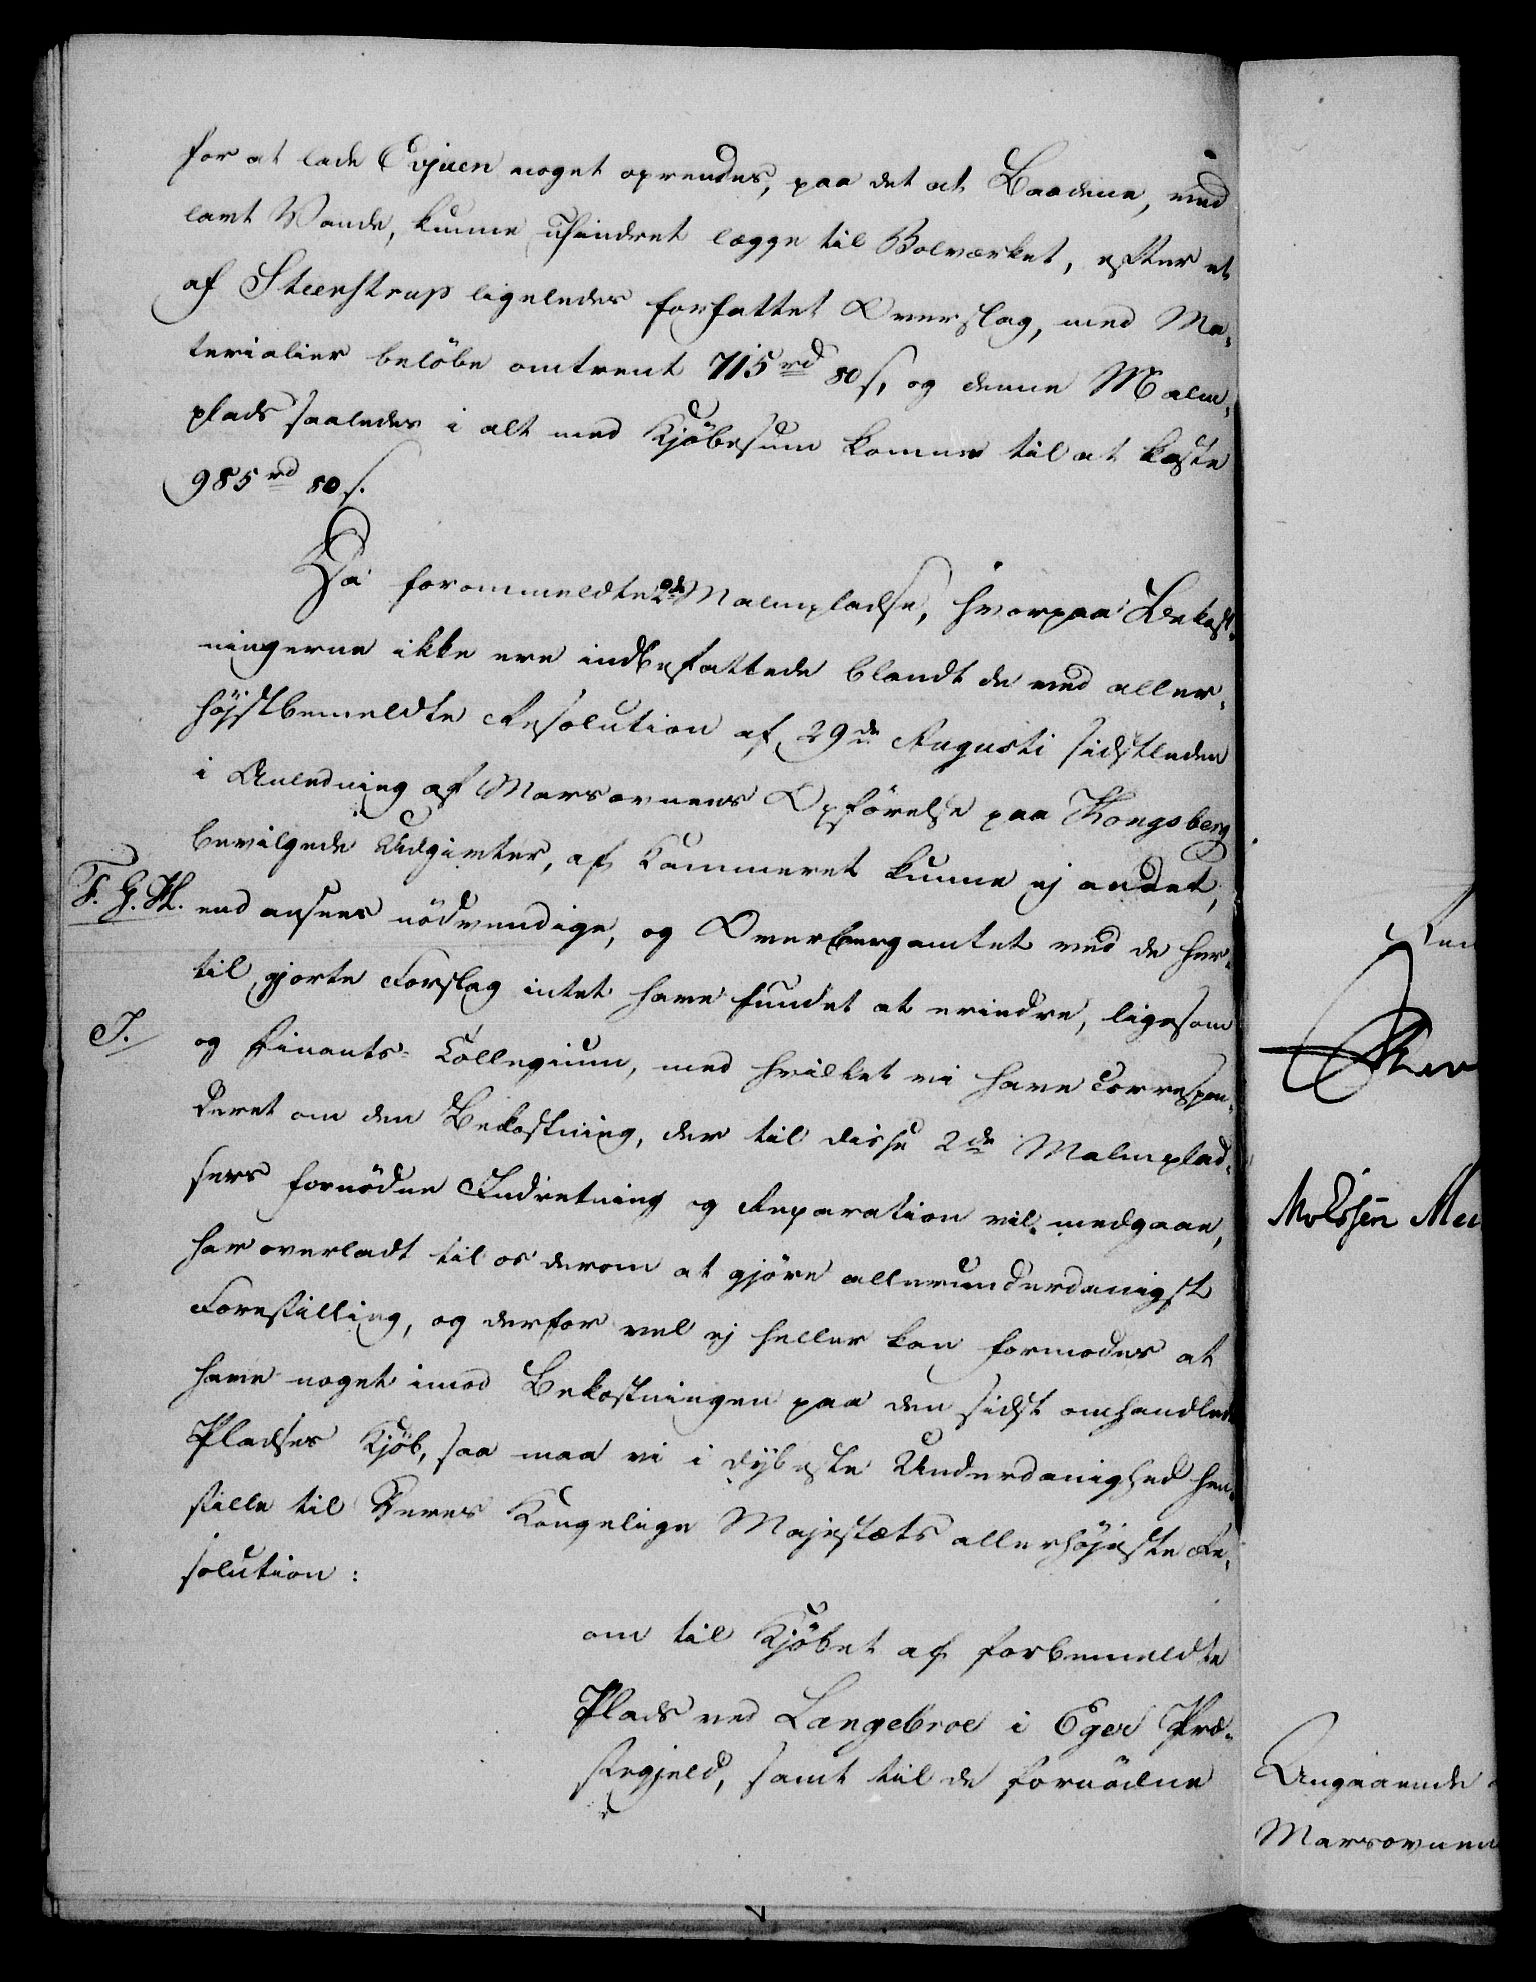 for at lade Evjuen noget oprendes, paa det at Baadene, med
lavt Vande, kunne uhindret lægge til Bolværket, efter et
af Steenstrup ligeledes forfattet Overslag, med Ma-
terialier beløbe omtrent 715 rd 80 s, og denne Malm-
plads saaledes i alt med Kjøbesum komme til at koste
985 rd 80 s.
Da forommeldte 2de Malmpladse, hvorpaa Bekost-
ningerne ikke ere indbefattede blandt de ved aller-
højstbemeldte Resolution af 29de Augusti sidstleden
i Anledning af Marsovnens Opførelse paa Kongsberg
bevilgede Udgivter, af Kammeret kunne ej andet,
F. G. H. end ansees nødvendige, og Overbergamtet ved de her-
til gjorte Forslag intet have fundet at erindre, ligesom
J. og Finants-Collegium, med hvilket vi have correspon-
deret om den Bekostning, der til disse 2de Malmplad-
sers fornødne Indretning og Reparation vil medgaae,
har overladt til os derom at gjøre allerunderdanigst
Forestilling, og derfor vel ej heller kan formodes at
have noget imod Bekostningen paa den sidst omhandlede
Pladses Kjøb, saa maa vi i dybeste Underdanighed hen-
stille til Deres Kongelige Majestæts allerhøjeste Re-
solution:
om til Kjøbet af forbemeldte
Plads ved Langebroe i Eger Præ-
stegjeld, samt til de fornødne
Angaaende
Marsovnen